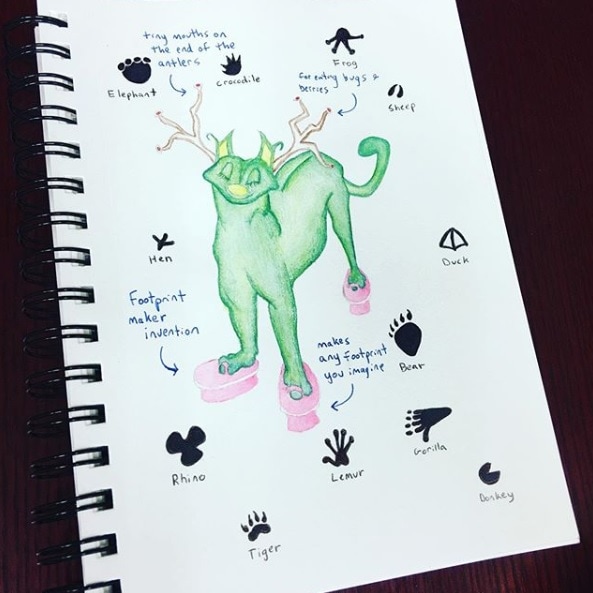 tiny mouths on
the end of the
antlers
Elephant
crocodile
Frog
for eating bugs &
berries
sheep
Hen
Duck
Footprint
maker
invention
makes
any footprint
you imagine
Bear
Rhino
Lemur
Gorilla
Donkey
Tiger